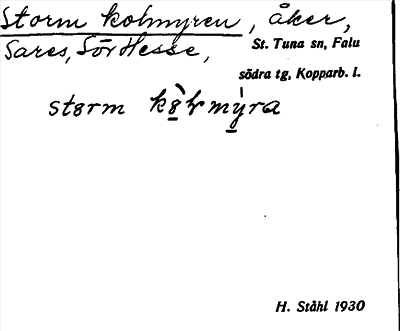 Storm kolmyren, åker,
Sares, Sör Hesse, St. Tuna sn, Falu
södra tg, Kopparb. l.
H. Ståhl 1930